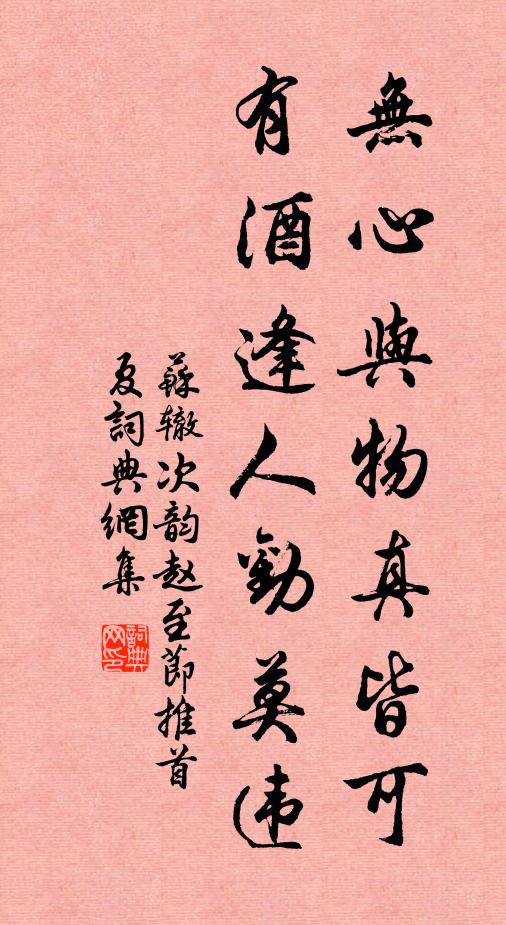 無心與物真皆可
有酒逢人勸莫违
蘇辙次韵赵至節推首
夏詞典網集
詞典网印